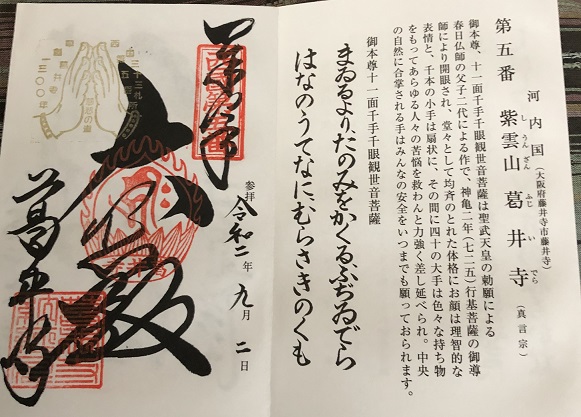 河内国（大阪府藤井寺市藤井寺）
第五番 紫雲山 葛井寺（真言宗）
しうんざん ふじいでら
御本尊、十一面千手千眼観世音菩薩は聖武天皇の勅願による
春日仏師の父子二代による作で、神亀二年（七二五）行基菩薩の御導
師により開眼され、堂々として均斉のとれた体格にお顔は理智的な
表情と、千本の小手は扇状に、その間に四十の大手は色々な持ち物
をもってあらゆる人々の苦悩を救わんと力強く差し延べられ。中央
の自然に合掌される手はみんなの安全をいつまでも願っておられます。
御本尊十一面千手千眼観世音菩薩
まゐるより、たのみをかくるふぢゐでら
はなのうてなに、むらさきのくも
参拝 令和二年九月二日
大悲殿
葛井寺